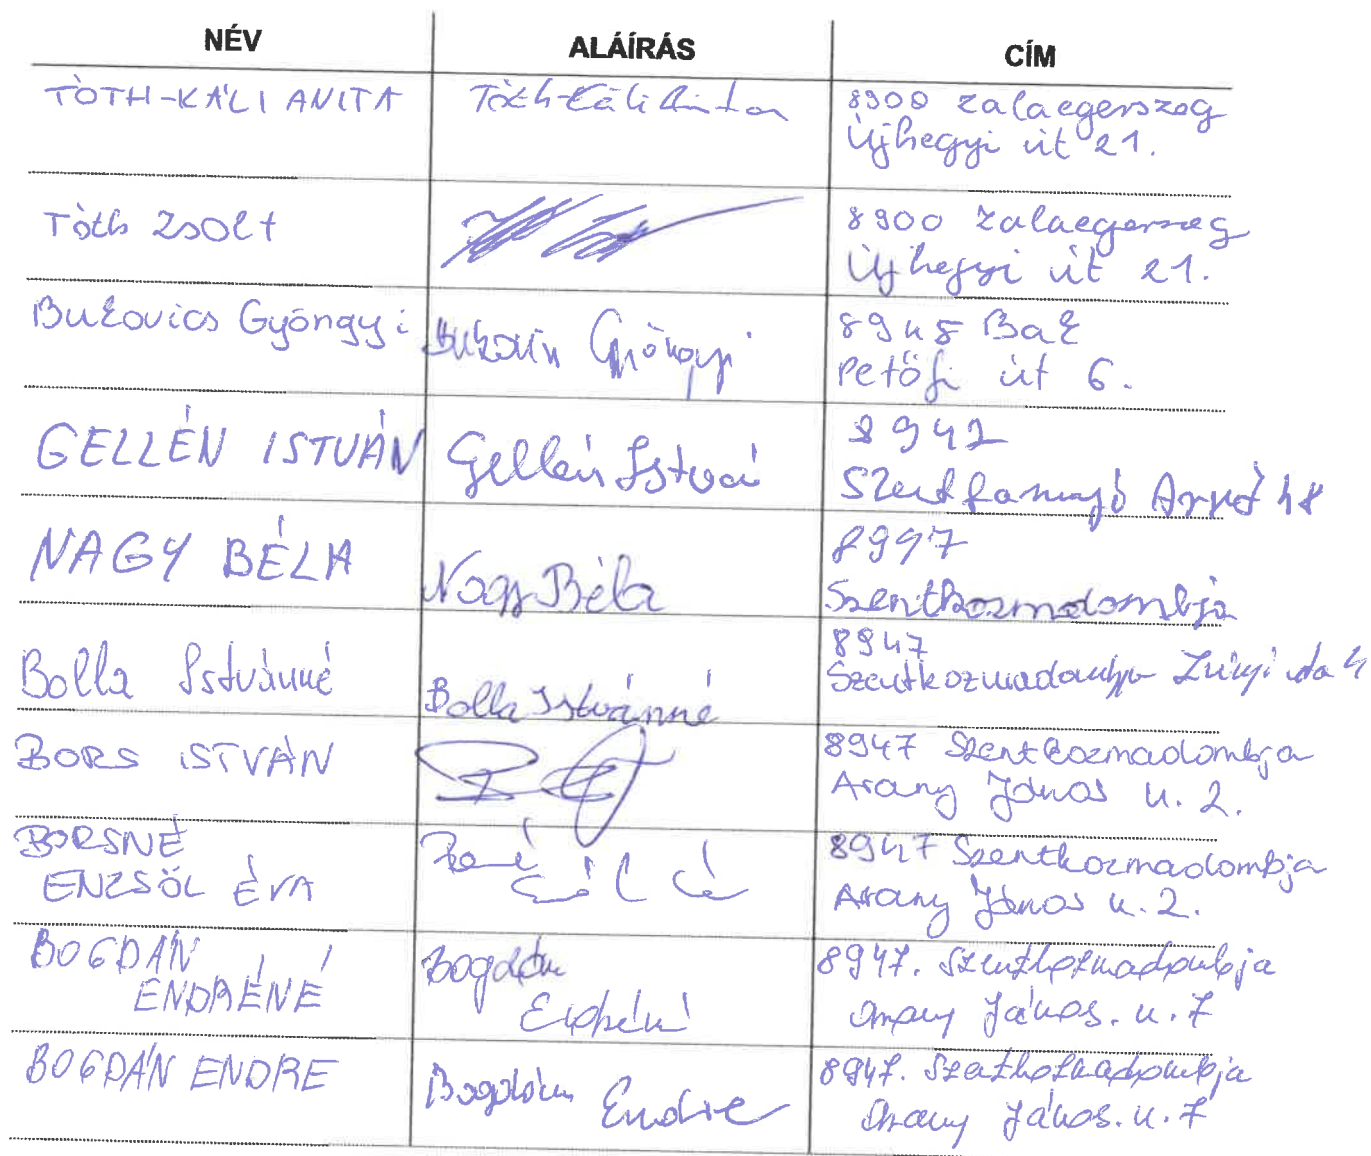 NÉV ALÁÍRÁS CÍM
TÓTH-KÁLI ANITA Tóth-Káli Anita 8900 Zalaegerszeg
Újhegyi út 21.
Tóth Zsolt 8900 Zalaegerszeg
Újhegyi út 21.
Bukovics Gyöngyi Bukovics Gyöngyi 8948 Bak
Petőfi út 6.
GELLÉN ISTVÁN Gellén István 8942
Árpád 48
NAGY BÉLA Nagy Béla 8947
Szentkozmadombja
Bolla Istvánné Bolla Istvánné 8947
Szentkozmadombja Zrínyi
BORS ISTVÁN 8947 Szentkozmadombja
Arany János u. 2.
BORSNÉ 8947 Szentkozmadombja
ENZSÖL ÉVA Arany János u. 2.
BOGDÁN Bogdán 8947. Szentkozmadombja
ENDRÉNÉ Endréné Arany János. u. 7
BOGDÁN ENDRE Bogdán Endre 8947. Szentkozmadombja
Arany János. u. 7